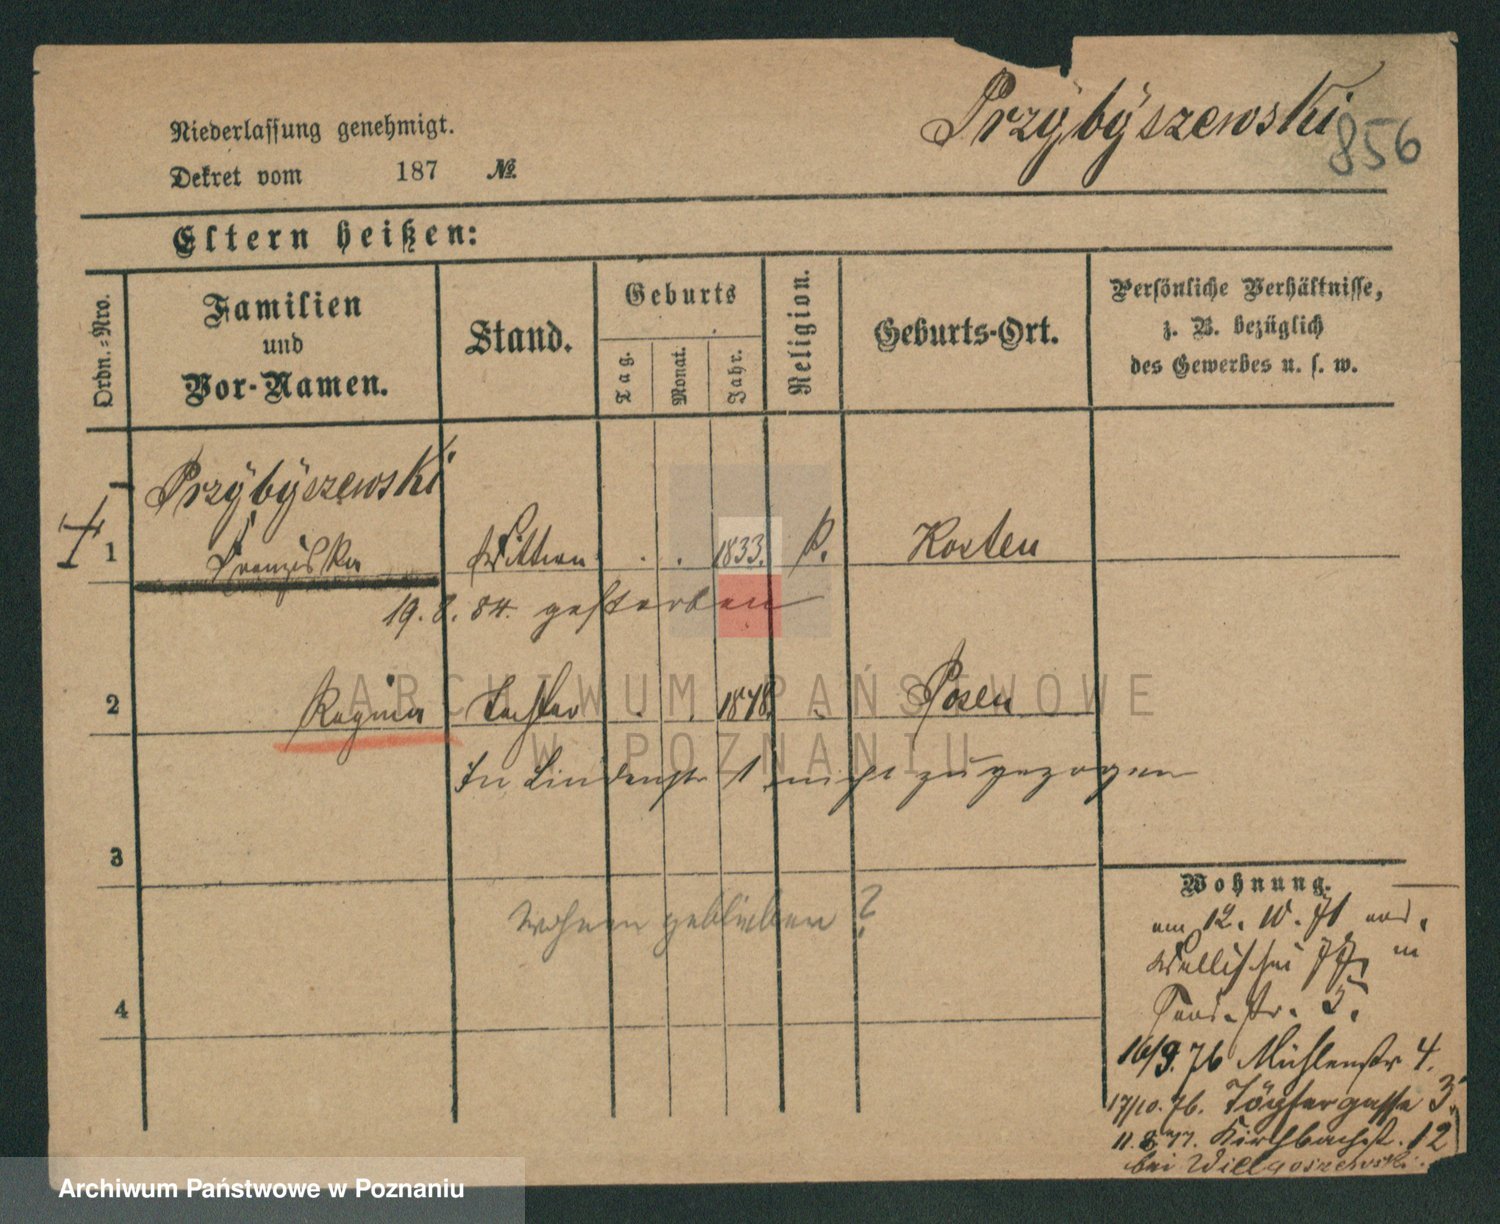 Przÿbÿszewski
856
Niederlassung genehmigt.
Dekret vom 187 №
Eltern heißen:
Ordn.-Nro.
Familien und Vor-Namen.
Stand.
Geburts
Tag.
Monat.
Jahr.
Religion.
Geburts-Ort.
Persönliche Verhältnisse,
z. B. bezüglich
des Gewerbes u. s. w.
Przÿbÿszewski
1 Franziska Wittwe . . 1833. k. Kosten
19. 8. 84. gestorben
2 Regina Tochter . . 1848. . Posen
In Lindenstr 1 nicht zugezogen
3
wohnen geblieben ?
4
Wohnung.
am 12. 10. 71 von
Wallischei 77, in
16/9. 76 Mühlenstr 4.
17/10. 76. Töpfergasse 3.
11. 8. 77. Kirchbachst. 12
bei Wielgoszewski.
ARCHIWUM PAŃSTWOWE
W POZNANIU
Archiwum Państwowe w Poznaniu